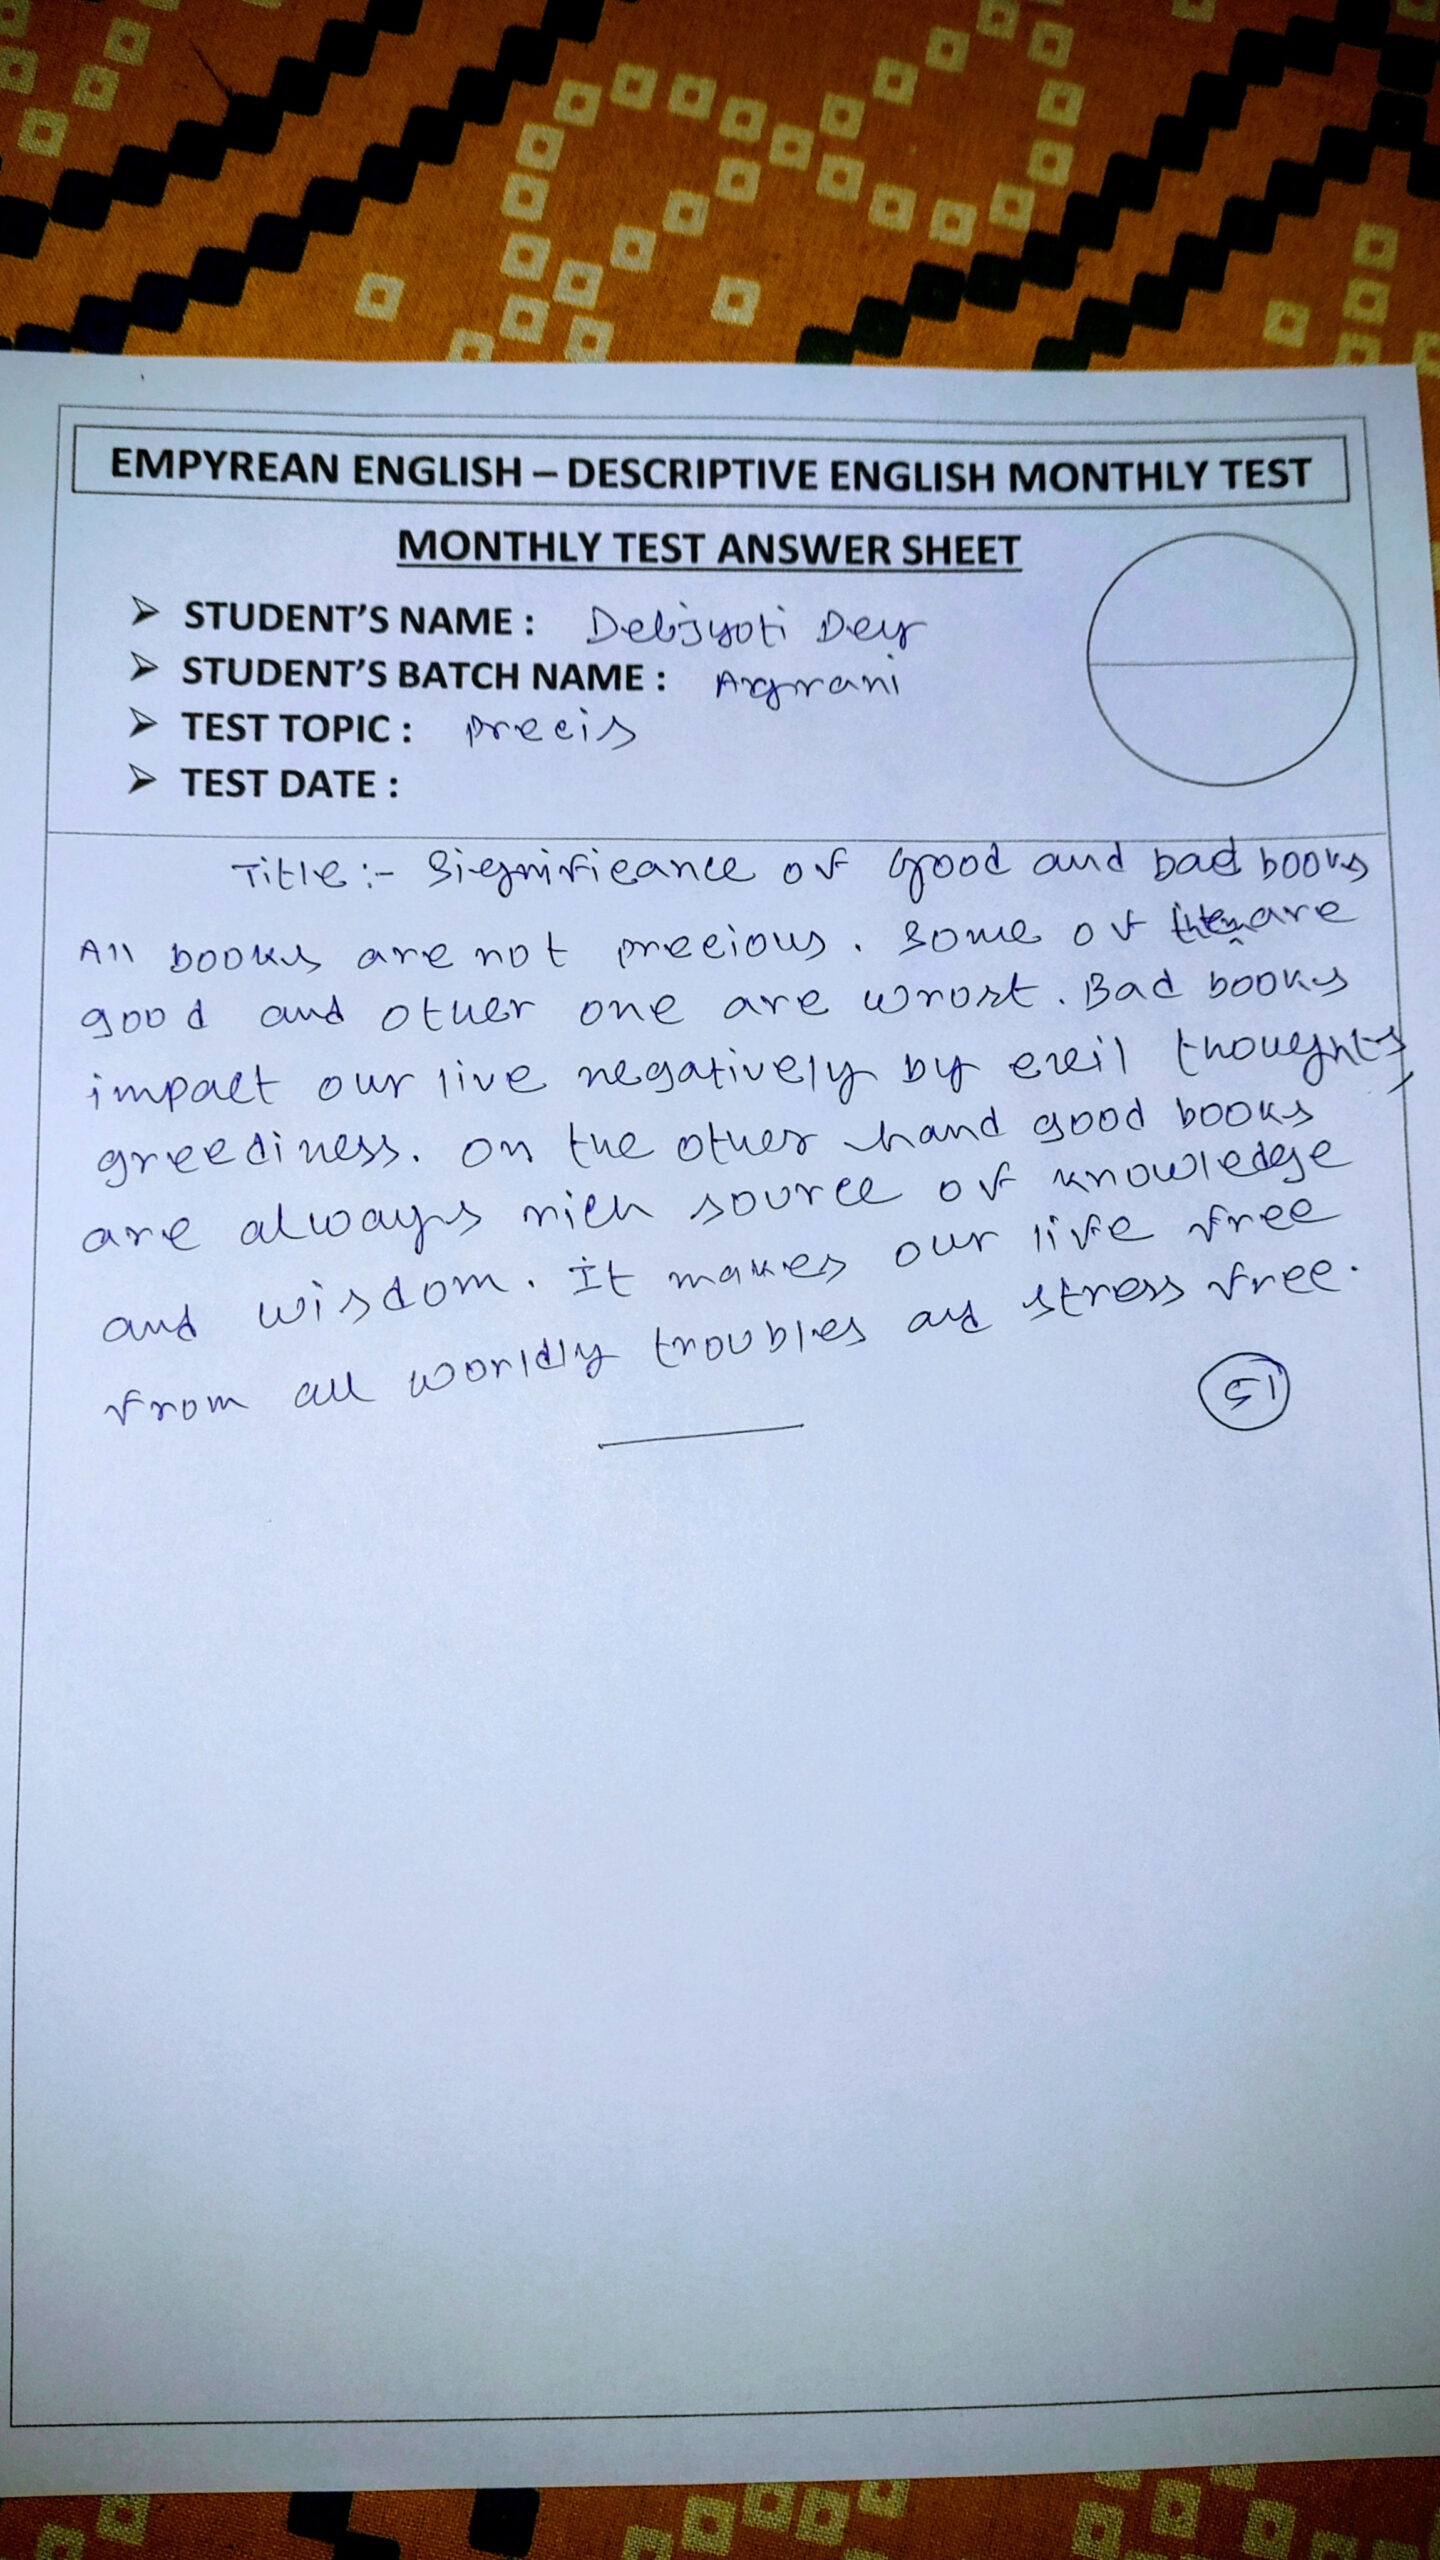 EMPYREAN ENGLISH – DESCRIPTIVE ENGLISH MONTHLY TEST
MONTHLY TEST ANSWER SHEET
➤ STUDENT'S NAME : Debjyoti Dey
➤ STUDENT'S BATCH NAME : Agrani
➤ TEST TOPIC : precis
➤ TEST DATE :
Title :- Significance of good and bad books
All books are not precious. Some of them are
good and other one are wrost. Bad books
impact our live negatively by evil thoughts,
greediness. On the other hand good books
are always rich source of knowledge
and wisdom. It makes our life free
from all worldly troubles and stress free.
51